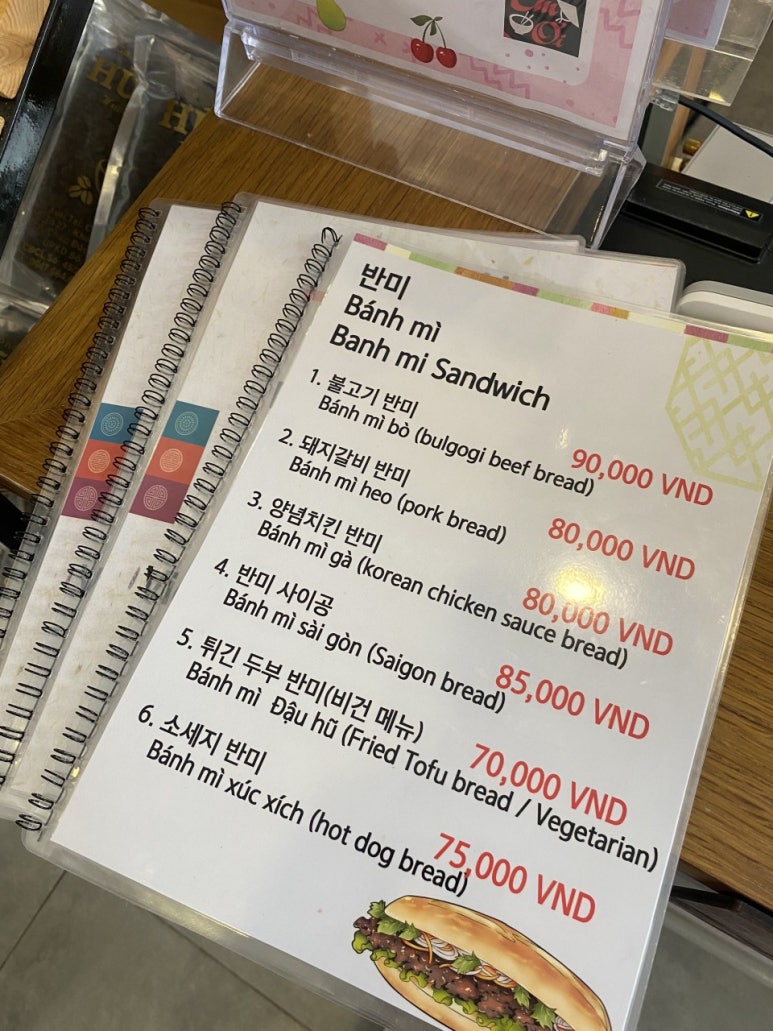 반미
Bánh mì
Banh mi Sandwich
1. 불고기 반미
Bánh mì bò (bulgogi beef bread)
90,000 VND
2. 돼지갈비 반미
Bánh mì heo (pork bread)
80,000 VND
3. 양념치킨 반미
Bánh mì gà (korean chicken sauce bread)
80,000 VND
4. 반미 사이공
Bánh mì sài gòn (Saigon bread)
85,000 VND
5. 튀긴 두부 반미(비건 메뉴)
Bánh mì Đậu hũ (Fried Tofu bread / Vegetarian)
70,000 VND
6. 소세지 반미
Bánh mì xúc xích (hot dog bread)
75,000 VND